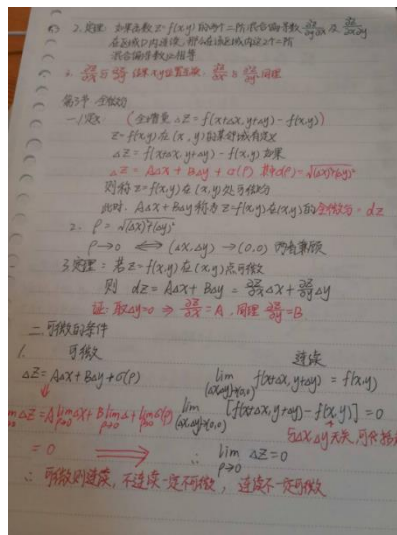 2.定理:如果函数z=f(x,y)的两个二阶混合偏导数 ∂²z/∂y∂x 及 ∂²z/∂x∂y
在区域D内连续,那么在该区域内这2个二阶
混合偏导数必相等
第3节 全微分
一.1.定义: (全增量 ΔZ=f(x+Δx,y+Δy)-f(x,y))
Z=f(x,y)在(x,y)的某邻域有定义
ΔZ=f(x+Δx,y+Δy)-f(x,y) 如果
ΔZ=AΔx+BΔy+o(ρ) 其中ρ=√(Δx)²+(Δy)²
则称z=f(x,y)在(x,y)处可微分
此时,AΔx+BΔy称为z=f(x,y)在(x,y)的全微分=dz
2. ρ=√(Δx)²+(Δy)²
ρ→0 ⟺ (Δx,Δy)→(0,0)
3.定理:若z=f(x,y)在(x,y)点可微
则 dz=AΔx+BΔy=∂z/∂x Δx+∂z/∂y Δy
证:取Δy=0 ⇒ ∂z/∂x=A,同理 ∂z/∂y=B
二.可微的条件
1. 可微 连续
ΔZ=AΔx+BΔy+o(ρ) lim (Δx,Δy)→(0,0) f(x+Δx,y+Δy)=f(x,y)
ΔZ=A lim ρ→0 Δx+B lim ρ→0 Δ+lim o(ρ) lim (Δx,Δy)→(0,0) [f(x+Δx,y+Δy)-f(x,y)]=0
与Δx Δy无关,可
=0 ⟹ ∴ lim ρ→0 ΔZ=0
∴ 可微则连续,不连续一定不可微,连续不一定可微